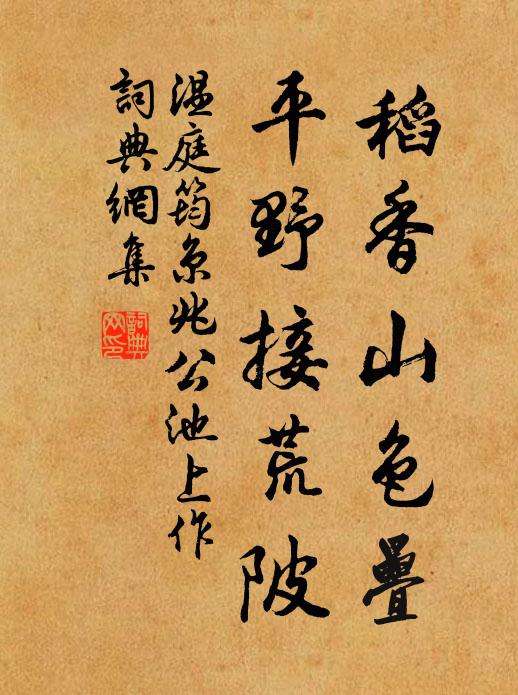 稻香山色疊
平野接荒陂
溫庭筠京兆公池上作
詞典網集
詞典
网印